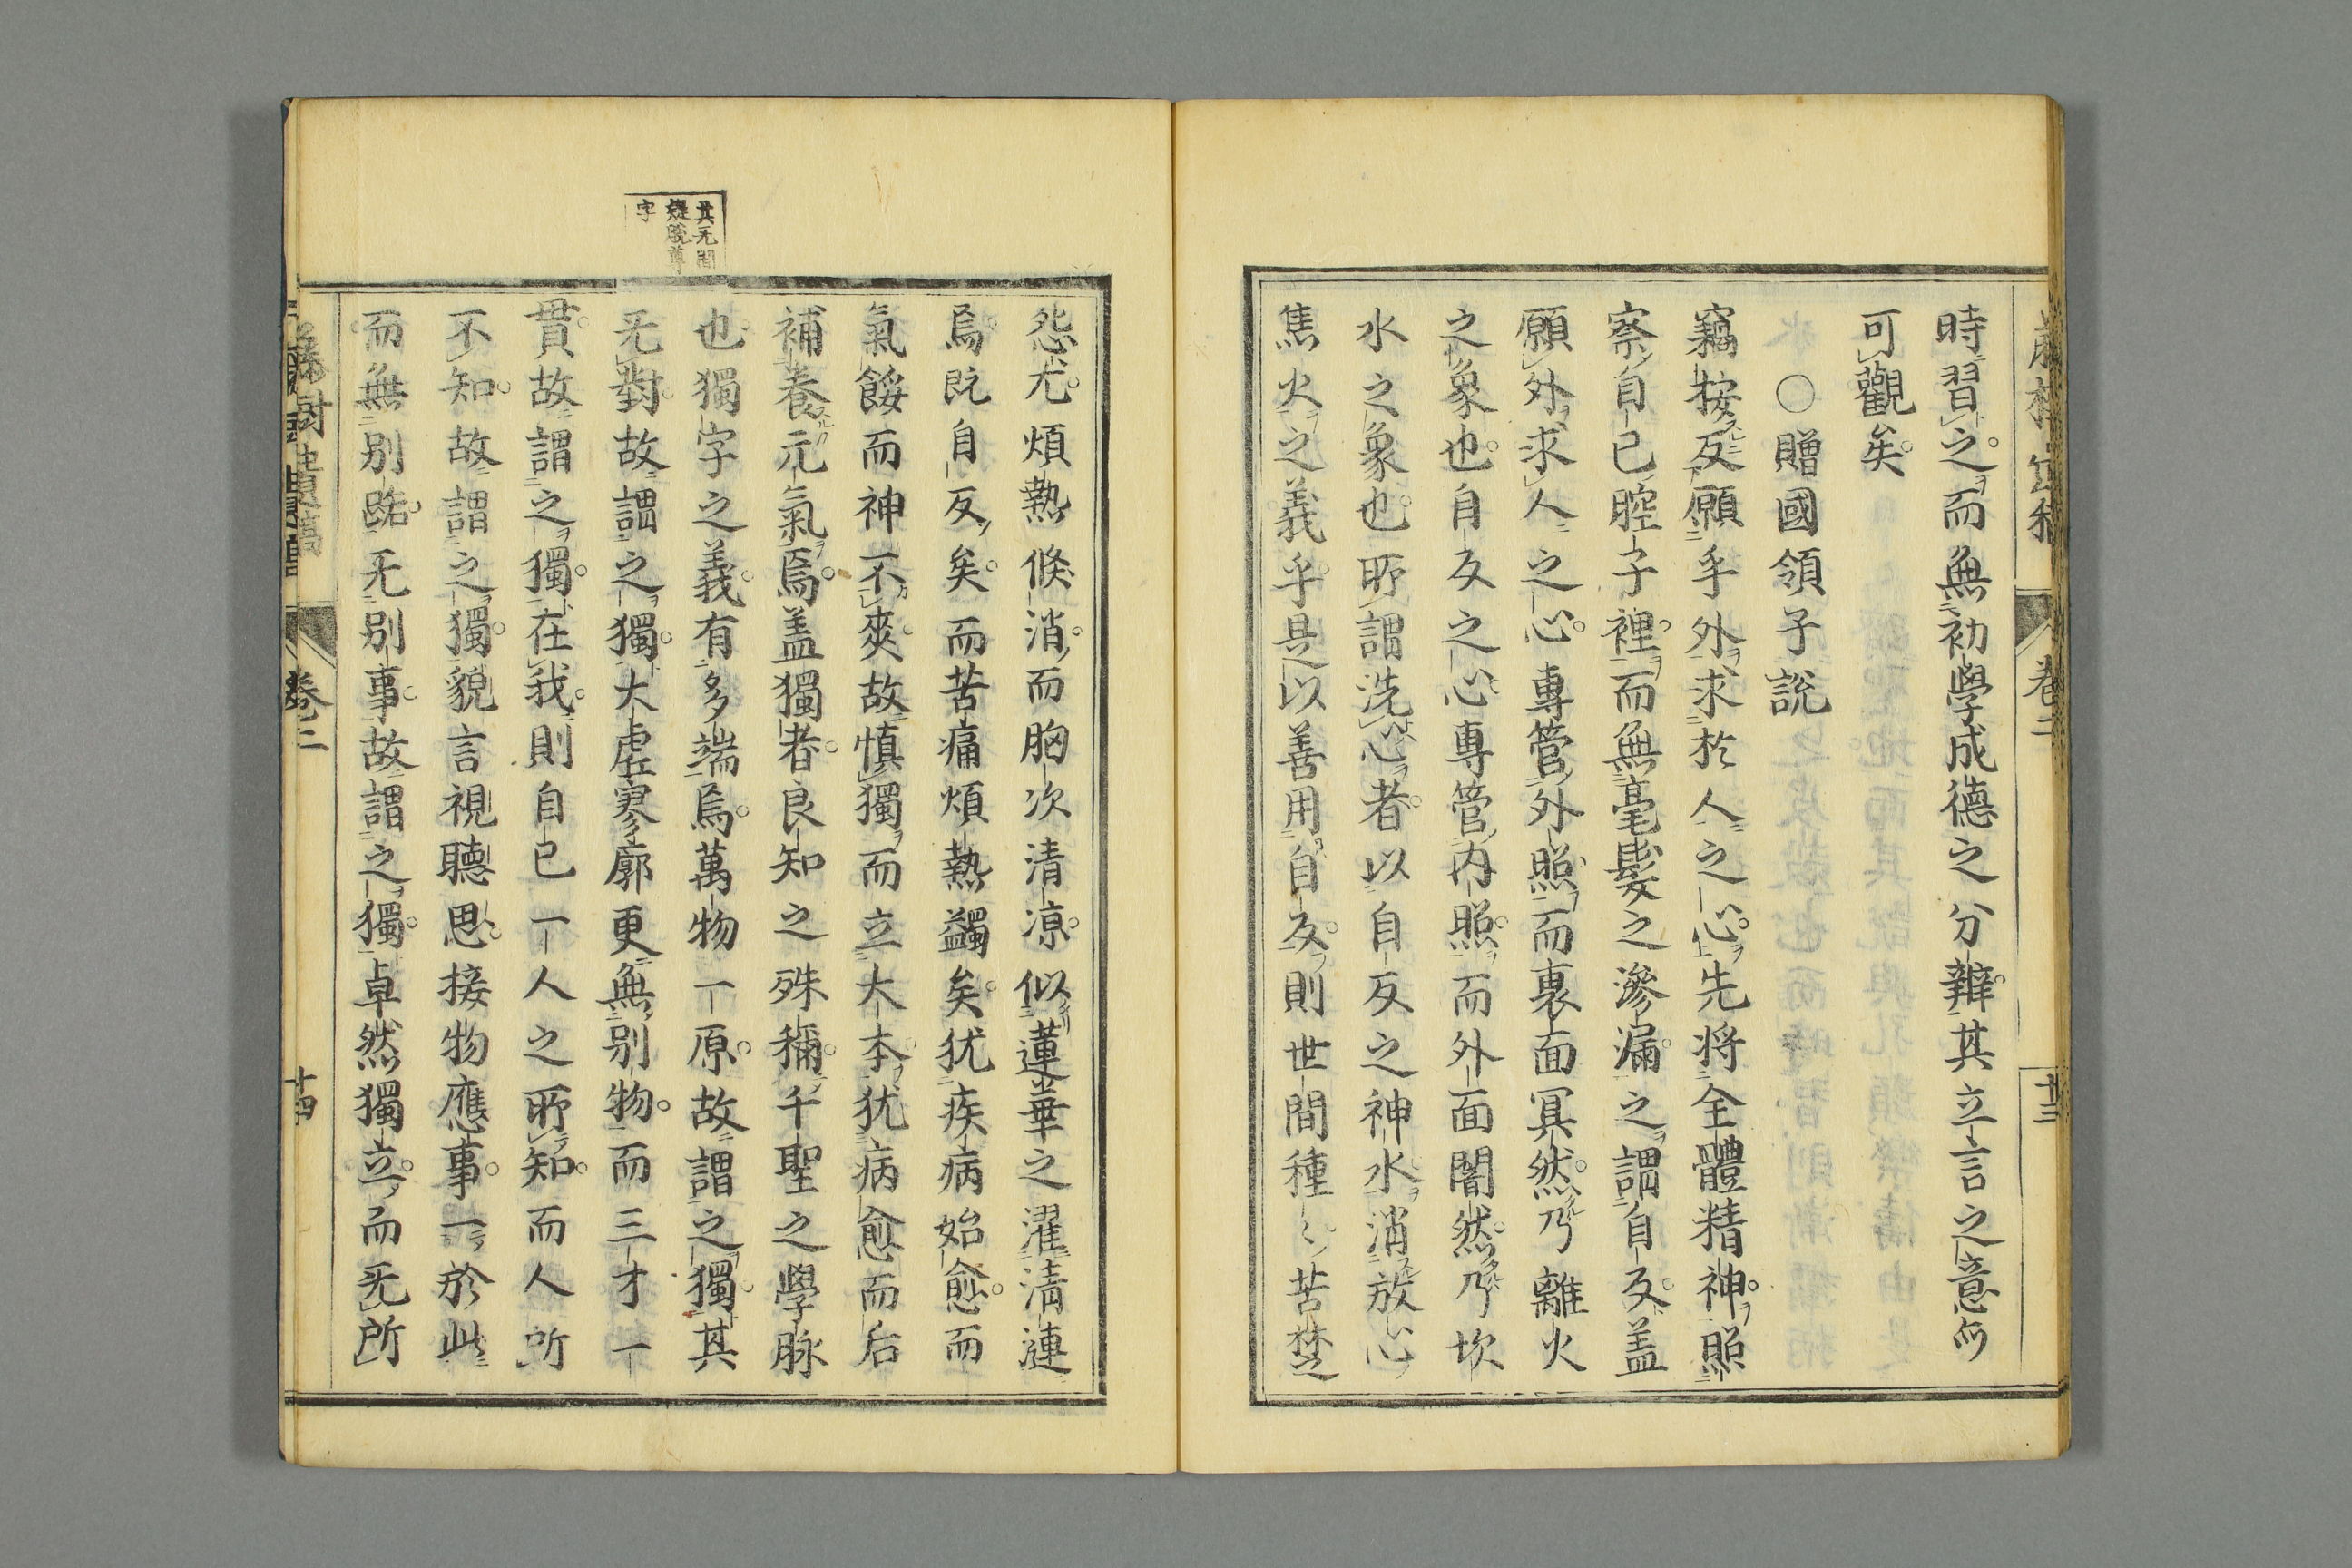 時習之而無初學成德之分辯其立言之意尚
可觀矣
○贈國領子說
竊按反願乎外求於人之心先將全體精神照
察自已腔子裡而無毫髮之滲漏之謂自反盖
願外求人之心專管外照而裏面冥然乃離火
之象也自反之心專管内照而外面闇然乃坎
水之象也所謂洗心者以自反之神水消放心
焦火之義乎是以善用自反則世間種〻苦楚
卷二
十三
怨尤煩熱倏消而胸次清凉似蓮華之濯淸漣
焉既自反矣而苦痛煩熱蠲矣犹疾病始愈而
氣餒而神不爽故慎獨而立大本犹病愈而后
補養元氣焉盖獨者良知之殊稱千聖之學脉
也獨字之義有多端焉萬物一原故謂之獨其
无對故謂之獨大虛寥廓更無别物而三才一
貫故謂之獨在我則自已一人之所知而人所
不知故謂之獨貌言視聽思接物應事一於此
而無别路无别事故謂之獨卓然獨立而无所
其无間
疑脱尊
字
藤樹遺稿
卷二
十四